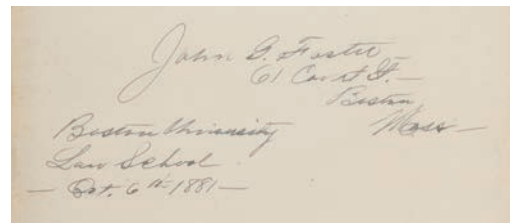 John G. Foster
61 Court St. —
Boston
Mass —
Boston University
Law School
— Oct. 6th 1881 —